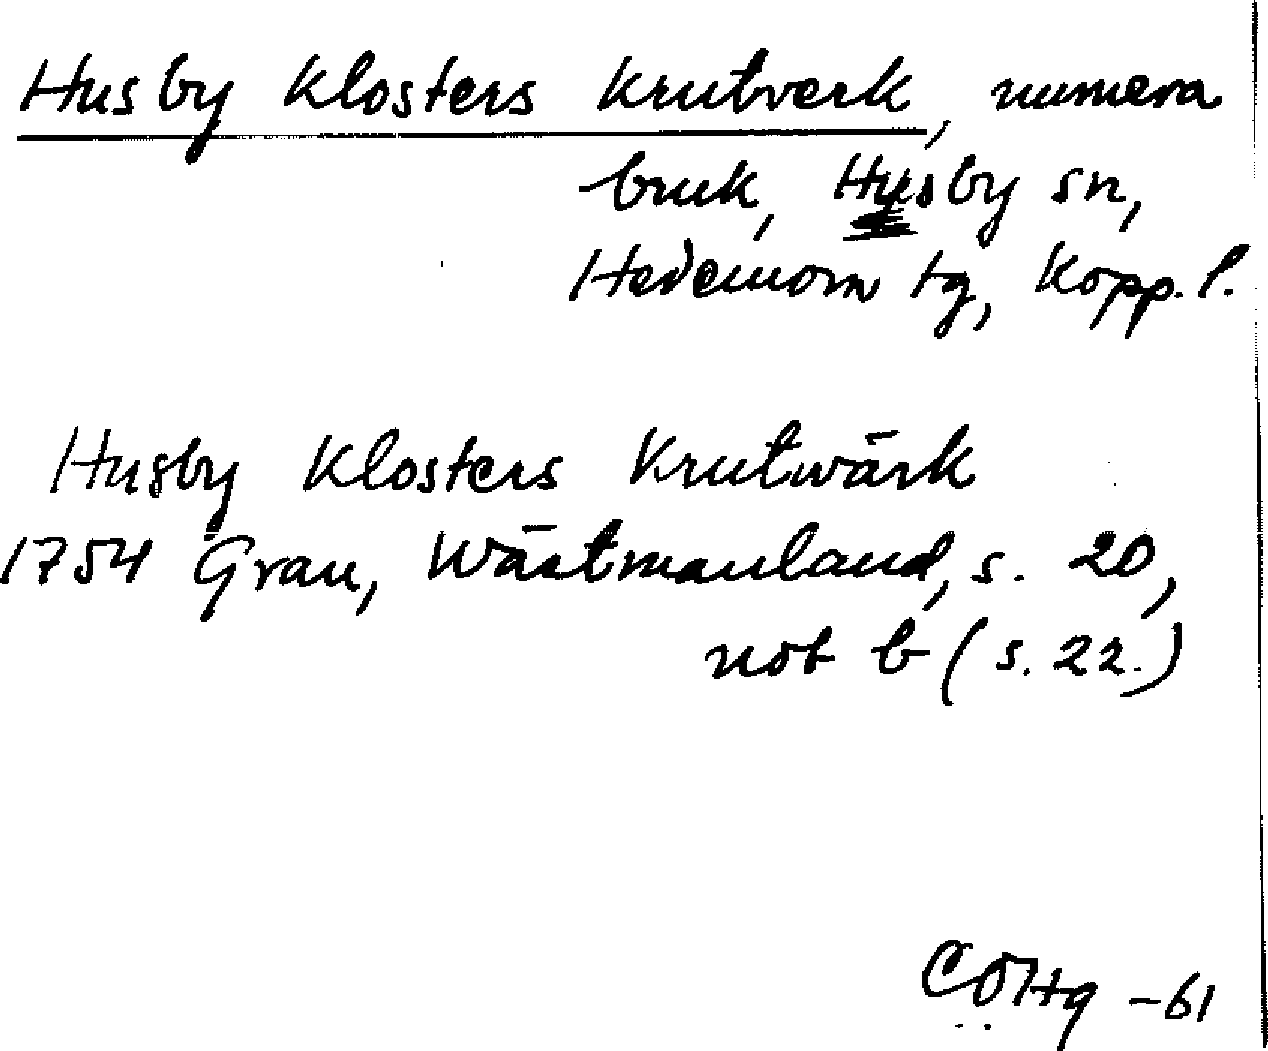 Husby Klosters Krutverk, numera
bruk, Husby sn,
Hedemora tg, Kopp. l.
Husby Klosters Krutwärk
1754 Grau, Wästmanland, s. 20,
not b (s. 22.)
-61